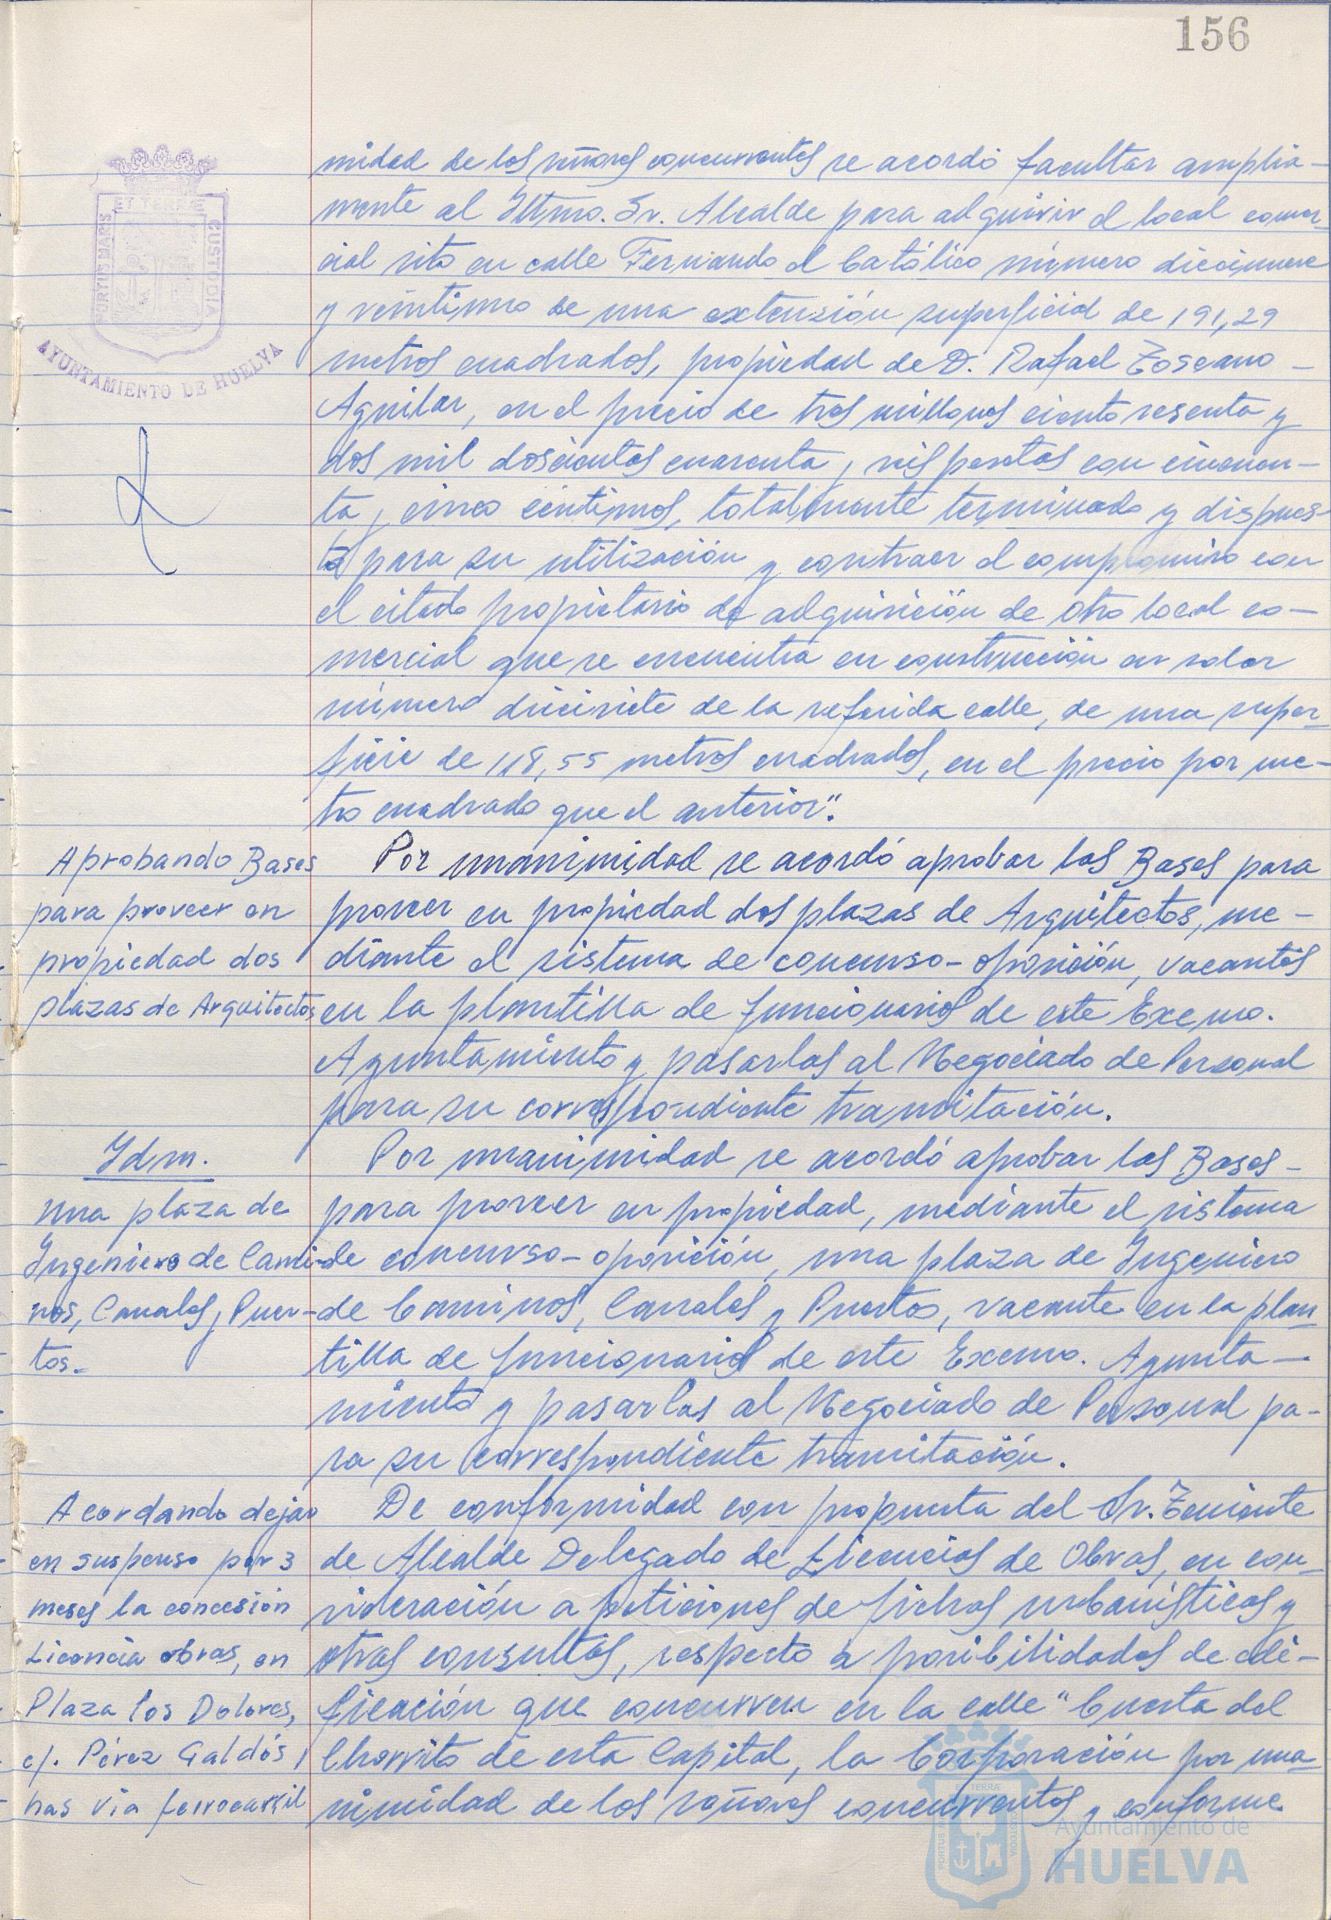 156
PORTUS MARIS ET TERRAE CUSTODIA
AYUNTAMIENTO DE HUELVA
midad de los señores concurrentes se acordó facultar amplia-
mente al Iltmo. Sr. Alcalde para adquirir el local comer-
cial sito en calle Fernando el Católico número diecinueve
y veintiuno de una extensión superficial de 191,29
metros cuadrados, propiedad de D. Rafael Toscano -
Aguilar, en el precio de tres millones ciento sesenta y
dos mil doscientos cuarenta y seis pesetas con cincuen-
ta y cinco céntimos, totalmente terminado y dispues-
to para su utilización y contraer el compromiso con
el citado propietario de adquisición de otro local co-
mercial que se encuentra en construcción en solar
número diecisiete de la referida calle, de una super-
ficie de 118,55 metros cuadrados, en el precio por me-
tro cuadrado que el anterior".
Aprobando Bases
para proveer en
propiedad dos
plazas de Arquitectos
Por unanimidad se acordó aprobar las Bases para
proveer en propiedad dos plazas de Arquitectos, me-
diante el sistema de concurso-oposición, vacantes
en la plantilla de funcionarios de este Excmo.
Ayuntamiento y pasarlas al Negociado de Personal
para su correspondiente tramitación.
Idm.
una plaza de
Ingeniero de Cami-
nos, Canales y Puer-
tos.
Por unanimidad se acordó aprobar las Bases -
para proveer en propiedad, mediante el sistema
de concurso-oposición, una plaza de Ingeniero
de Caminos, Canales y Puertos, vacante en la plan-
tilla de funcionarios de este Excmo. Ayunta-
miento y pasarlas al Negociado de Personal pa-
ra su correspondiente tramitación.
Acordando dejar
en suspenso por 3
meses la concesión
Licencia obras, en
Plaza los Dolores,
c/. Pérez Galdós y
tras vía ferrocarril
De conformidad con propuesta del Sr. Teniente
de Alcalde Delegado de Licencias de Obras, en con-
sideración a peticiones de fichas urbanísticas y
otras consultas, respecto a posibilidades de edi-
ficación que concurren en la calle "Cuesta del
Chorrito de esta Capital, la Corporación por una-
nimidad de los señores concurrentes y conforme
Ayuntamiento de
HUELVA